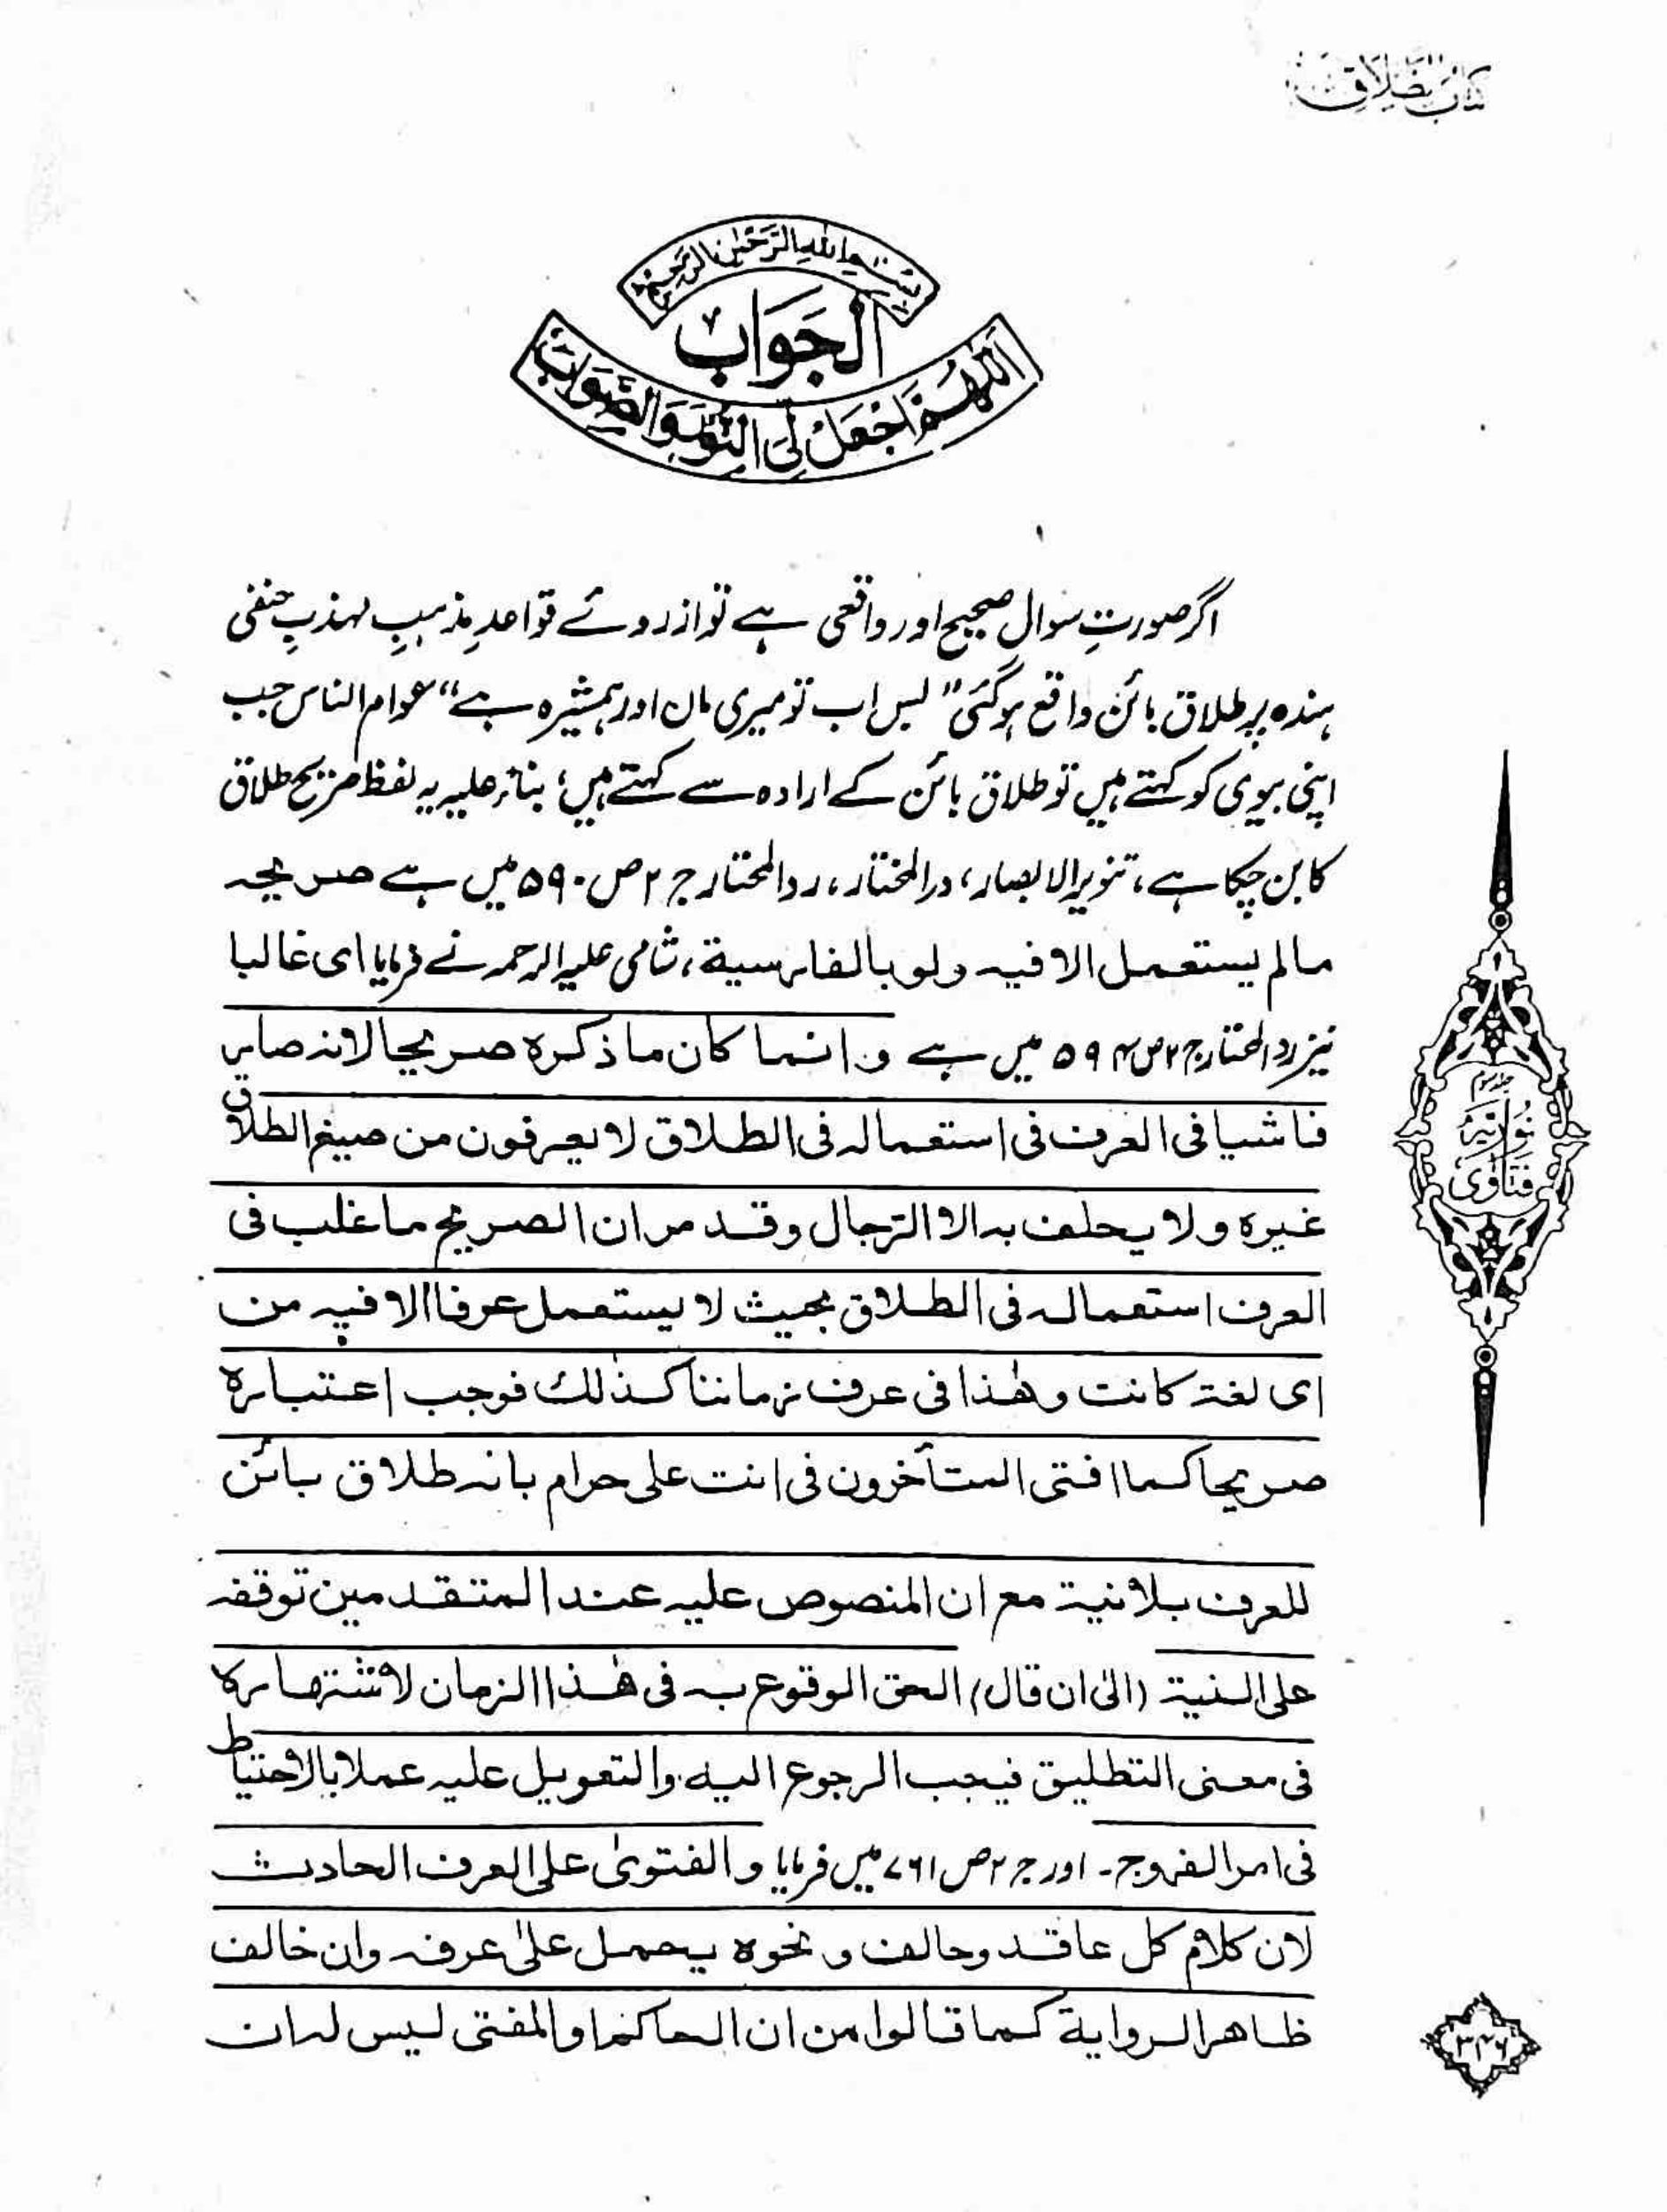 کتاب الطلاق
بسم اللہ الرحمٰن الرحیم
الجواب
اللّٰھم اجعل لی النور والصواب
اگر صورتِ سوال صحیح اور واقعی ہے تو ازروئے قواعدِ مذہبِ مہذبِ حنفی
ہندہ پر طلاق بائن واقع ہوگئی "بس اب تو میری ماں اور ہمشیرہ ہے" عوام الناس جب
اپنی بیوی کو کہتے ہیں تو طلاق بائن کے ارادہ سے کہتے ہیں؛ بناءً علیہ یہ لفظ صریح طلاق
کا بن چکا ہے، تنویر الابصار، درالمختار، ردالمحتار ج ۲ ص ۵۹۰ میں ہے صریحہ
مالم یستعمل الا فیہ ولو بالفارسیة، شامی علیہ الرحمہ نے فرمایا ای غالبا
نیز ردالمحتار ج ۲ ص ۵۹۴ میں ہے و انما کان ما ذکرہ صریحا لانہ صار
فاشیا فی العرف فی استعمالہ فی الطلاق لا یعرفون من صیغ الطلاق
غیرہ ولا یحلف بہ الا الرّجال وقد مر ان الصریح ما غلب فی
العرف استعمالہ فی الطلاق بحیث لا یستعمل عرفا الا فیہ من
ای لغة کانت وھٰذا فی عرف زماننا کذٰلک فوجب اعتبارہ
صریحا کما افتی المتأخرون فی انت علی حرام بانہ طلاق بائن
للعرف بلا نیة مع ان المنصوص علیہ عند المتقدمین توقفہ
علی النیة (الیٰ ان قال) الحق الوقوع بہ فی ھٰذا الزمان لاشتھارہ
فی معنی التطلیق فیجب الرجوع الیہ والتعویل علیہ عملا بالاحتیاط
فی امر الفروج۔ اور ج ۲ ص ۷۶۱ میں فرمایا والفتویٰ علی العرف الحادث
لان کلام کل عاقد وحالف و نحوہ یحمل علیٰ عرفہ وان خالف
ظاھر الروایة کما قالوا من ان الحاکم او المفتی لیس لہ ان
جلد سوم
فتاویٰ نوریہ
۳۴۶